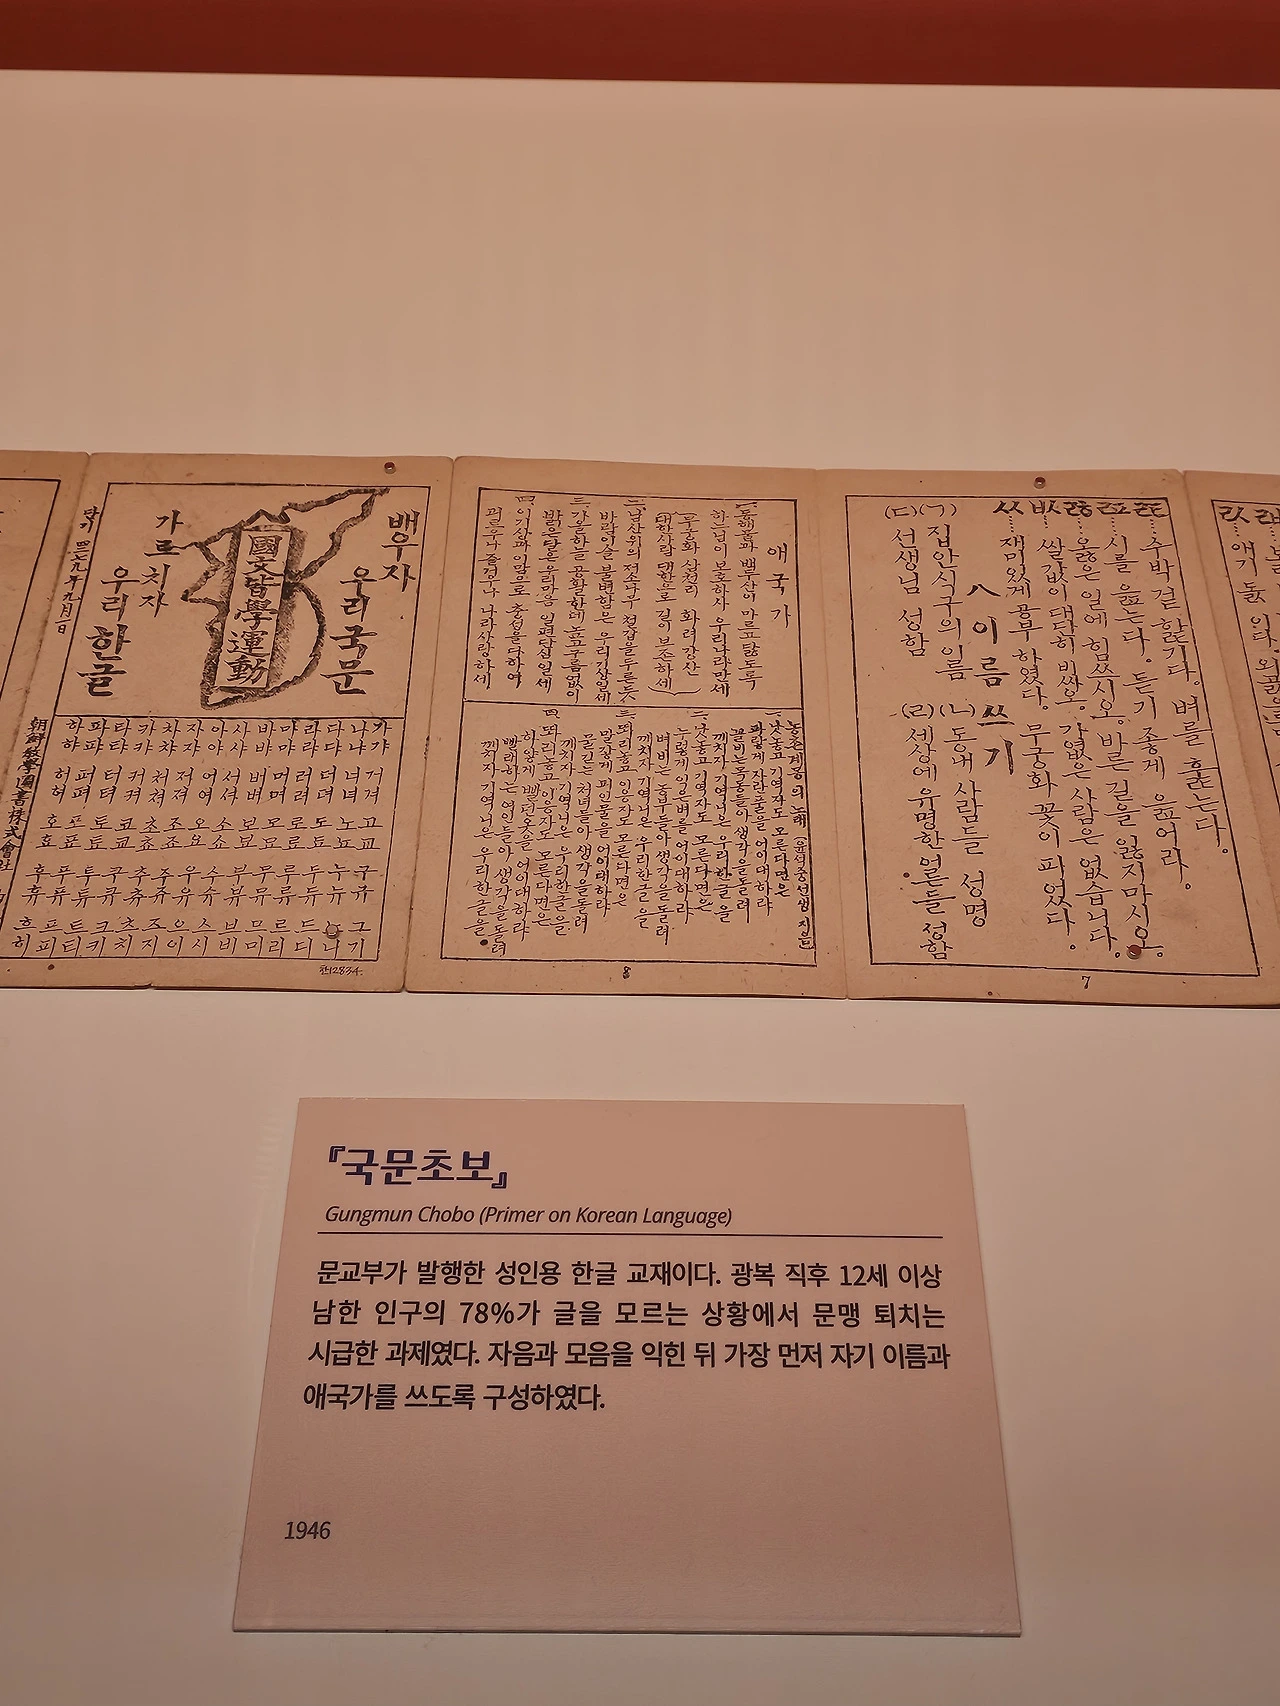 ㄾ…수박 겉 핥기다. 벼를 훑는다.
ㄿ…시를 읊는다. 듣기 좋게 읊어라.
ㅀ…옳은 일에 힘쓰시오. 바른 길을 잃지마시오.
ㅄ…쌀값이 대단히 비싸오. 가엾은 사람은 없습니다.
ㅆ…재미있게 공부하였다. 무궁화 꽃이 피었다.
八 이름 쓰기
(ㄱ) 집안식구의 이름 (ㄴ) 동내 사람들 성명
(ㄷ) 선생님 성함 (ㄹ) 세상에 유명한 성함
7
애국가
一, 동해물과 백두산이 마르고 닳도록
하느님이 보호하사 우리나라만세
무궁화 삼천리 화려강산
대한사람 대한으로 길이 보존하세
二, 남산위의 저소나무 철갑을두른듯
바람이슬 불변함은 우리기상일세
三, 가을하늘 공활한데 높고구름없이
밝은달은 우리마음 일편단심일세
四, 이기상과 이맘으로 충성을다하여
괴로우나 즐겁거나 나라사랑하세
농촌계몽의 노래 윤석중선생 지음
一, 낫놓고 기역자도 모른다면은
꼴비는목동들아 생각을돌려
깨치자 기역니은 우리한글을
二,
벼비는 농부들아 생각을돌려
깨치자 기역니은 우리한글을
三,
처녀들아 생각을돌려
깨치자 기역니은 우리한글을
四,
빨래하는 여인들아 생각을돌려
깨치자 기역니은 우리한글을
8
배우자 우리국문
國文皆學運動
가르치자 우리한글
단기 四二七九年九月一日
가갸 거겨 고교 구규 그기
나냐 너녀 노뇨 누뉴 느니
다댜 더뎌 도됴 두듀 드디
라랴 러려 로료 루류 르리
마먀 머며 모묘 무뮤 므미
바뱌 버벼 보뵤 부뷰 브비
사샤 서셔 소쇼 수슈 스시
아야 어여 오요 우유 으이
자쟈 저져 조죠 주쥬 즈지
차챠 처쳐 초쵸 추츄 츠치
카캬 커켜 코쿄 쿠큐 크키
타탸 터텨 토툐 투튜 트티
파퍄 퍼펴 포표 푸퓨 프피
하햐 허혀 호효 후휴 흐히
朝鮮敎學圖書株式會社
한12834
『국문초보』
Gungmun Chobo (Primer on Korean Language)
문교부가 발행한 성인용 한글 교재이다. 광복 직후 12세 이상
남한 인구의 78%가 글을 모르는 상황에서 문맹 퇴치는
시급한 과제였다. 자음과 모음을 익힌 뒤 가장 먼저 자기 이름과
애국가를 쓰도록 구성하였다.
1946